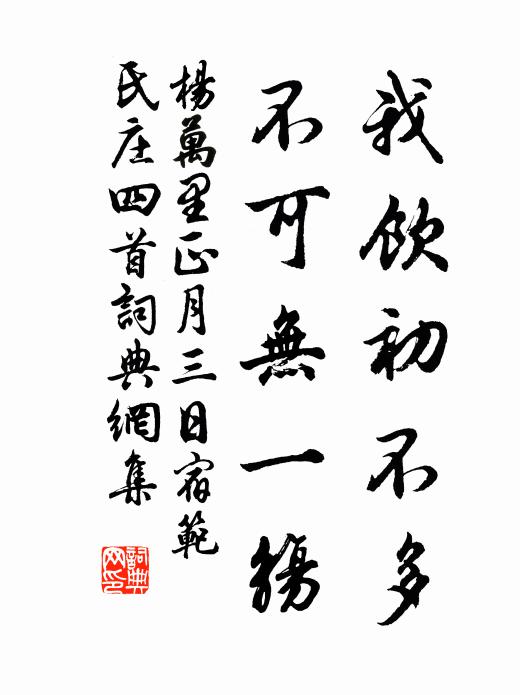 我飲初不多
不可無一觴
楊萬里正月三日宿範
氏庄四首詞典網集
詞典網印